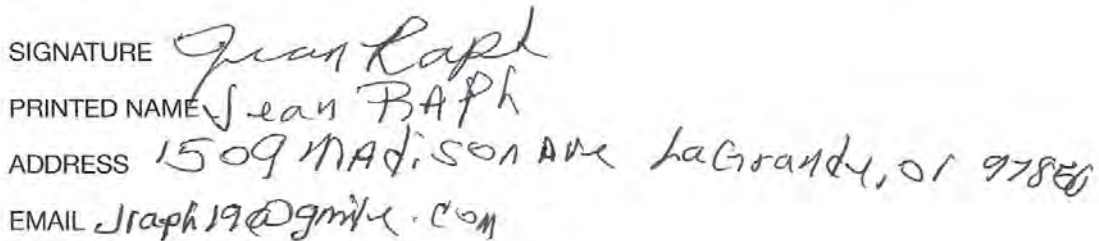 SIGNATURE Jean Raph
PRINTED NAME Jean RAPh
ADDRESS 1509 MADison Ave LaGrande, Or 97850
EMAIL Jraph19@gmile.com